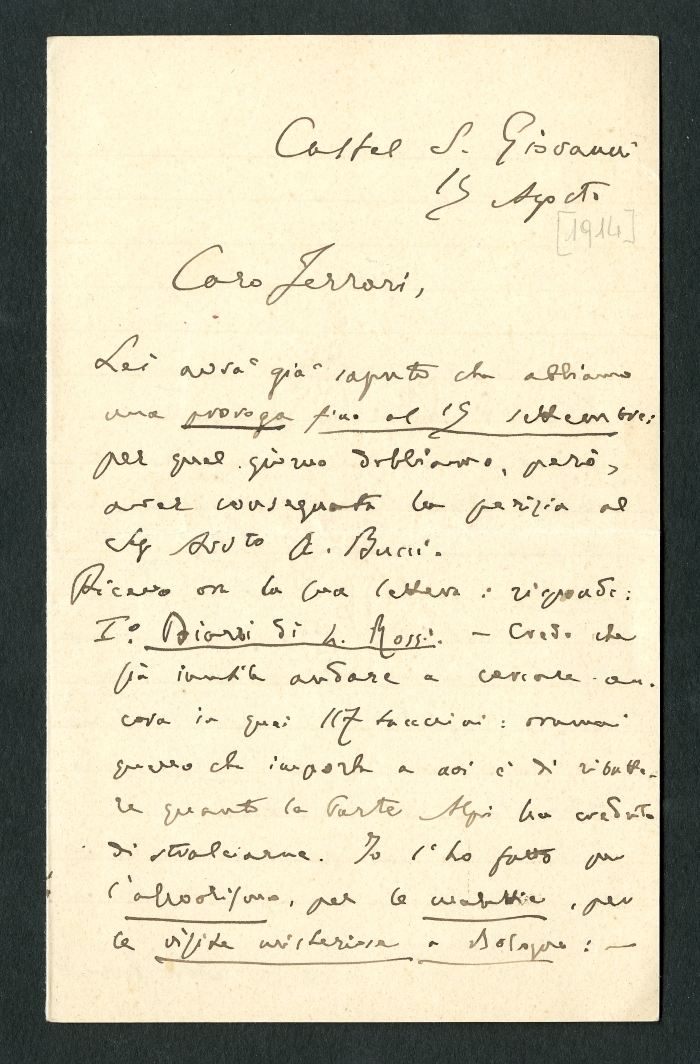 Castel S. Giovanni
15 Agosto
[1914]
Caro Ferrari,
Lei avrà già saputo che abbiamo
una proroga fino al 15 settembre;
per quel giorno dobbiamo, però,
aver consegnata la perizia al
Avvto A. Bucci.
Ricevo ora la sua lettera: rispondo:
I° Diarii di L. Rossi. — Credo che
sia inutile andare a cercare an-
cora in quei 117 taccuini: oramai
quello che importa a noi è di ribatte-
re quanto la Parte Alpi ha creduto
di stralciarne. Io l'ho fatto per
l'afrodisismo, per le malattie, per
le visite misteriose a Bologna: —